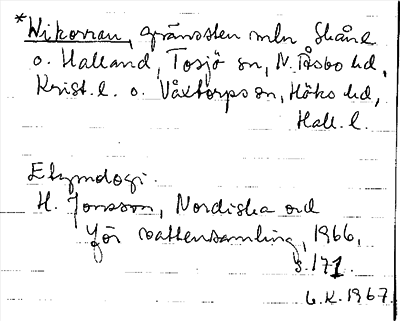 *Wikorran, gränssten mln Skåne
o. Halland, Tosjö sn, N. Åsbo hd,
Krist. l. o. Våxtorps sn, Höks hd,
Hall. l.
Etymologi.
H. Jonsson, Nordiska ord
för vattensamling, 1966,
s. 171.
L.K. 1967